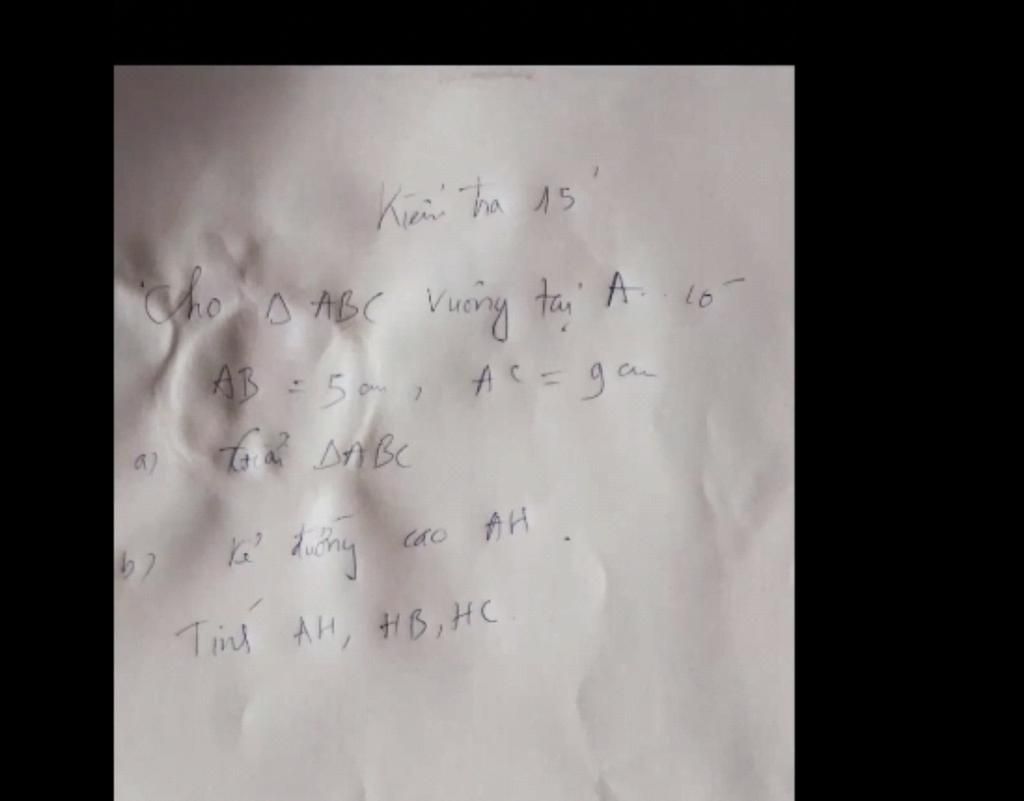 Kiểm tra 15'
Cho Δ ABC vuông tại A. có
AB = 5 cm, AC = 9 cm
a) Giải ΔABC
b) Kẻ đường cao AH.
Tính AH, HB, HC.